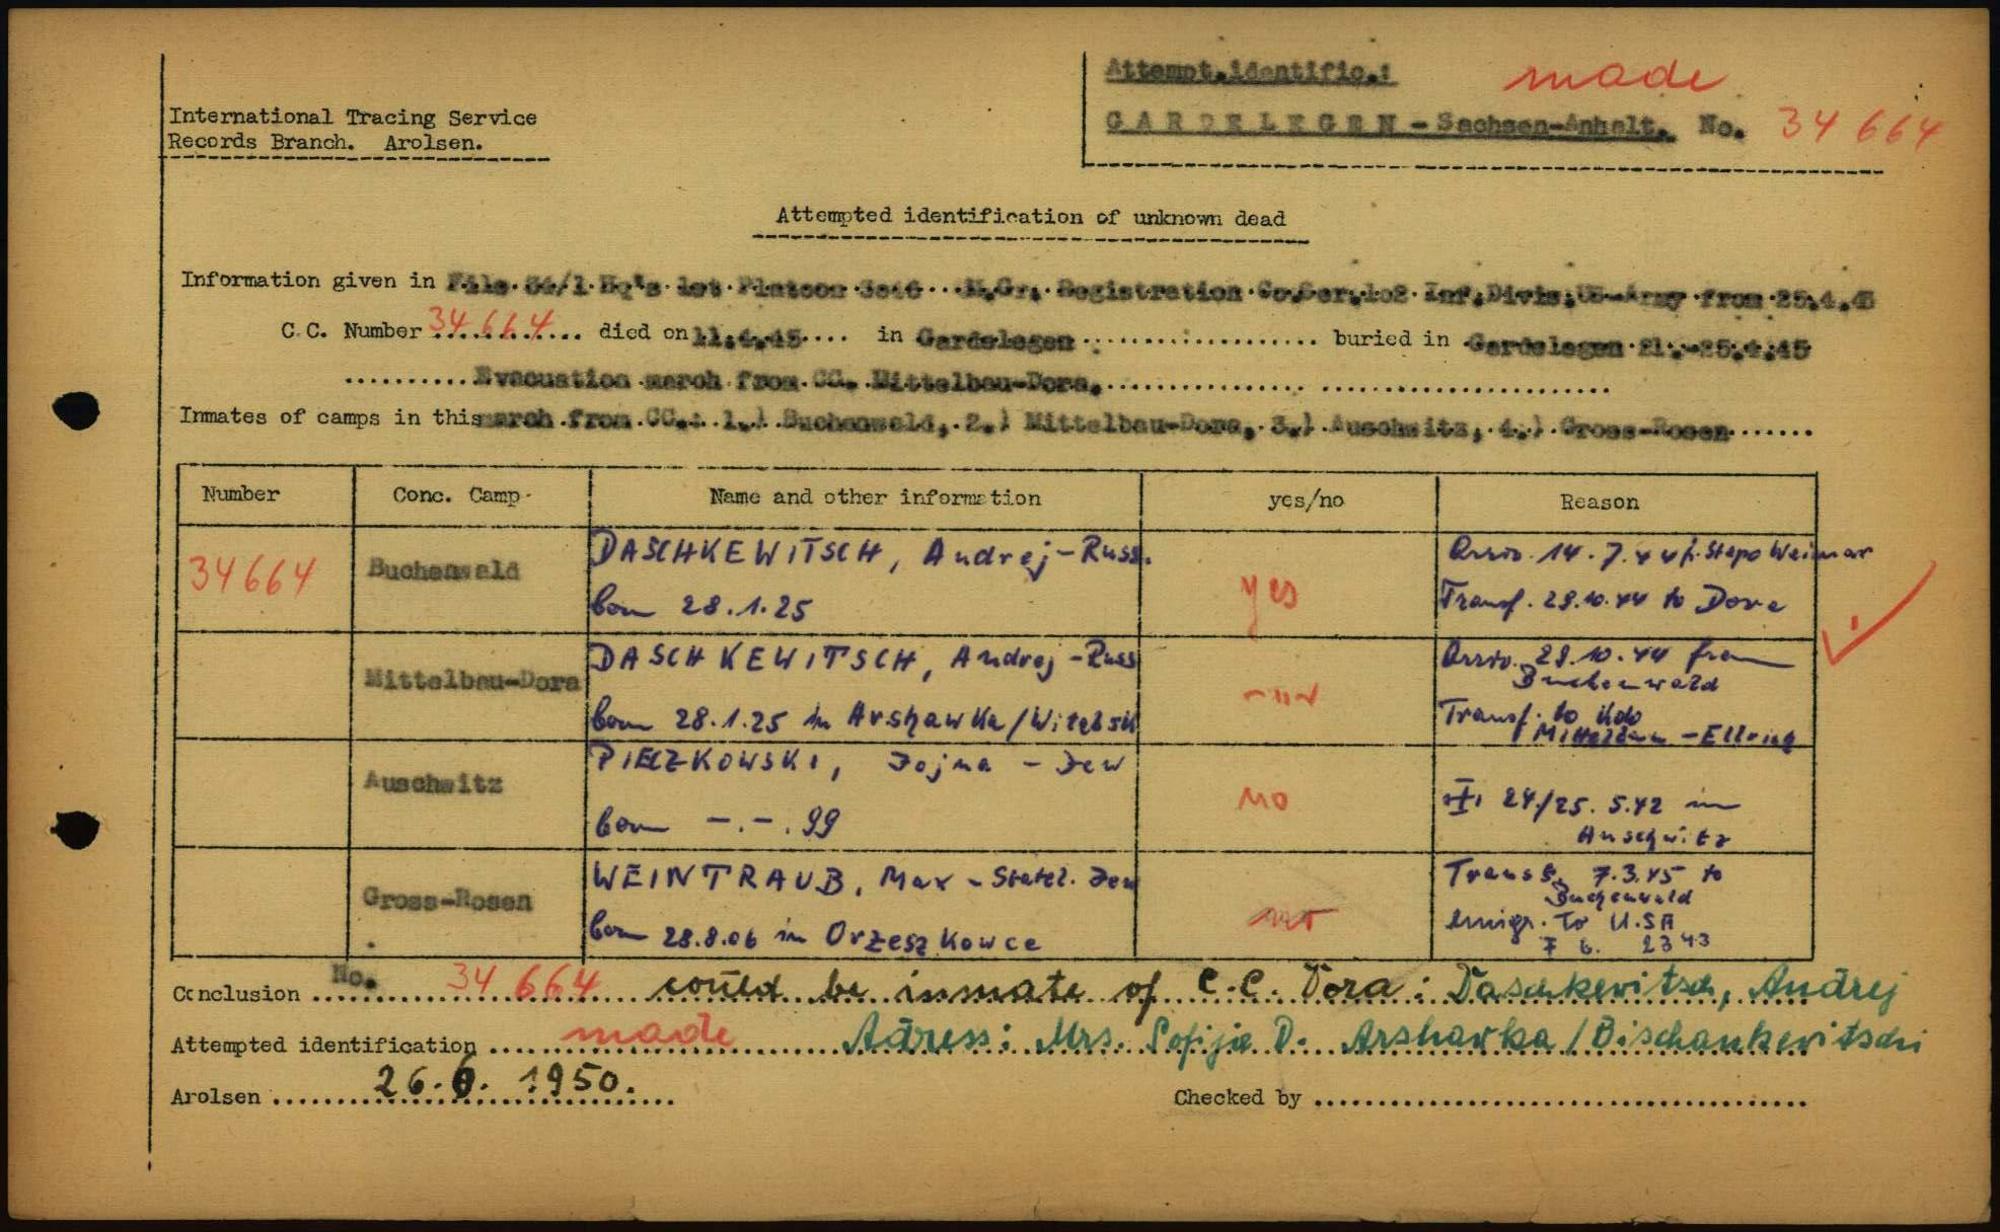 Attempt.identific.: made
International Tracing Service
GARDELEGEN - Sachsen-Anhalt. No. 34 664
Records Branch. Arolsen.
Attempted identification of unknown dead
Information given in File 34/1 Hq's 1st Platoon 3046 M.Gr. Registration Co.Ser.102 Inf.Divis.US-Army from 25.4.45
C.C. Number 34664 died on 11.4.45 in Gardelegen buried in Gardelegen 21.-25.4.45
Evacuation march from CC. Mittelbau-Dora.
Inmates of camps in this march from CC.: 1.) Buchenwald, 2.) Mittelbau-Dora, 3.) Auschwitz, 4.) Gross-Rosen
Number Conc. Camp. Name and other information yes/no Reason
34664 Buchenwald DASCHKEWITSCH, Andrej - Russ. yes Arriv. 14.7.44 f. Stapo Weimar
born 28.1.25 Transf. 29.10.44 to Dora
Mittelbau-Dora DASCHKEWITSCH, Andrej - Russ -"- Arriv. 29.10.44 from
Buchenwald
born 28.1.25 in Arshawka/Witebsk Transf. to Kdo
Mittelbau - Ellrich
Auschwitz PIECZKOWSKI, Jojna - Jew no
born -.-.99 24./25.5.42 in
Auschwitz
Gross-Rosen WEINTRAUB, Max - Statel. Jew no Transf. 7.3.45 to
Buchenwald
born 28.8.06 in Orzeszkowce emigr. to U.SA
2343
Conclusion No. 34 664 could be inmate of C.C. Dora: Daschkewitsch, Andrej
Attempted identification made Adress: Mrs. Sofija D. Arshawka/Bischankowitschi
Arolsen 26.6.1950. Checked by